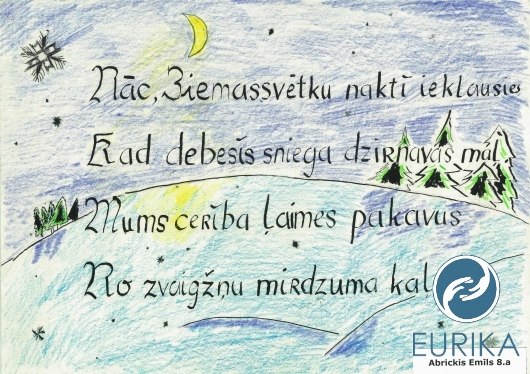 Nāc, Ziemassvētku naktī ieklausies
Kad debesīs sniega dzirnavas maļ
Mums cerība laimes pakavus
No zvaigžņu mirdzuma kaļ
EURIKA
Abrickis Emils 8.a